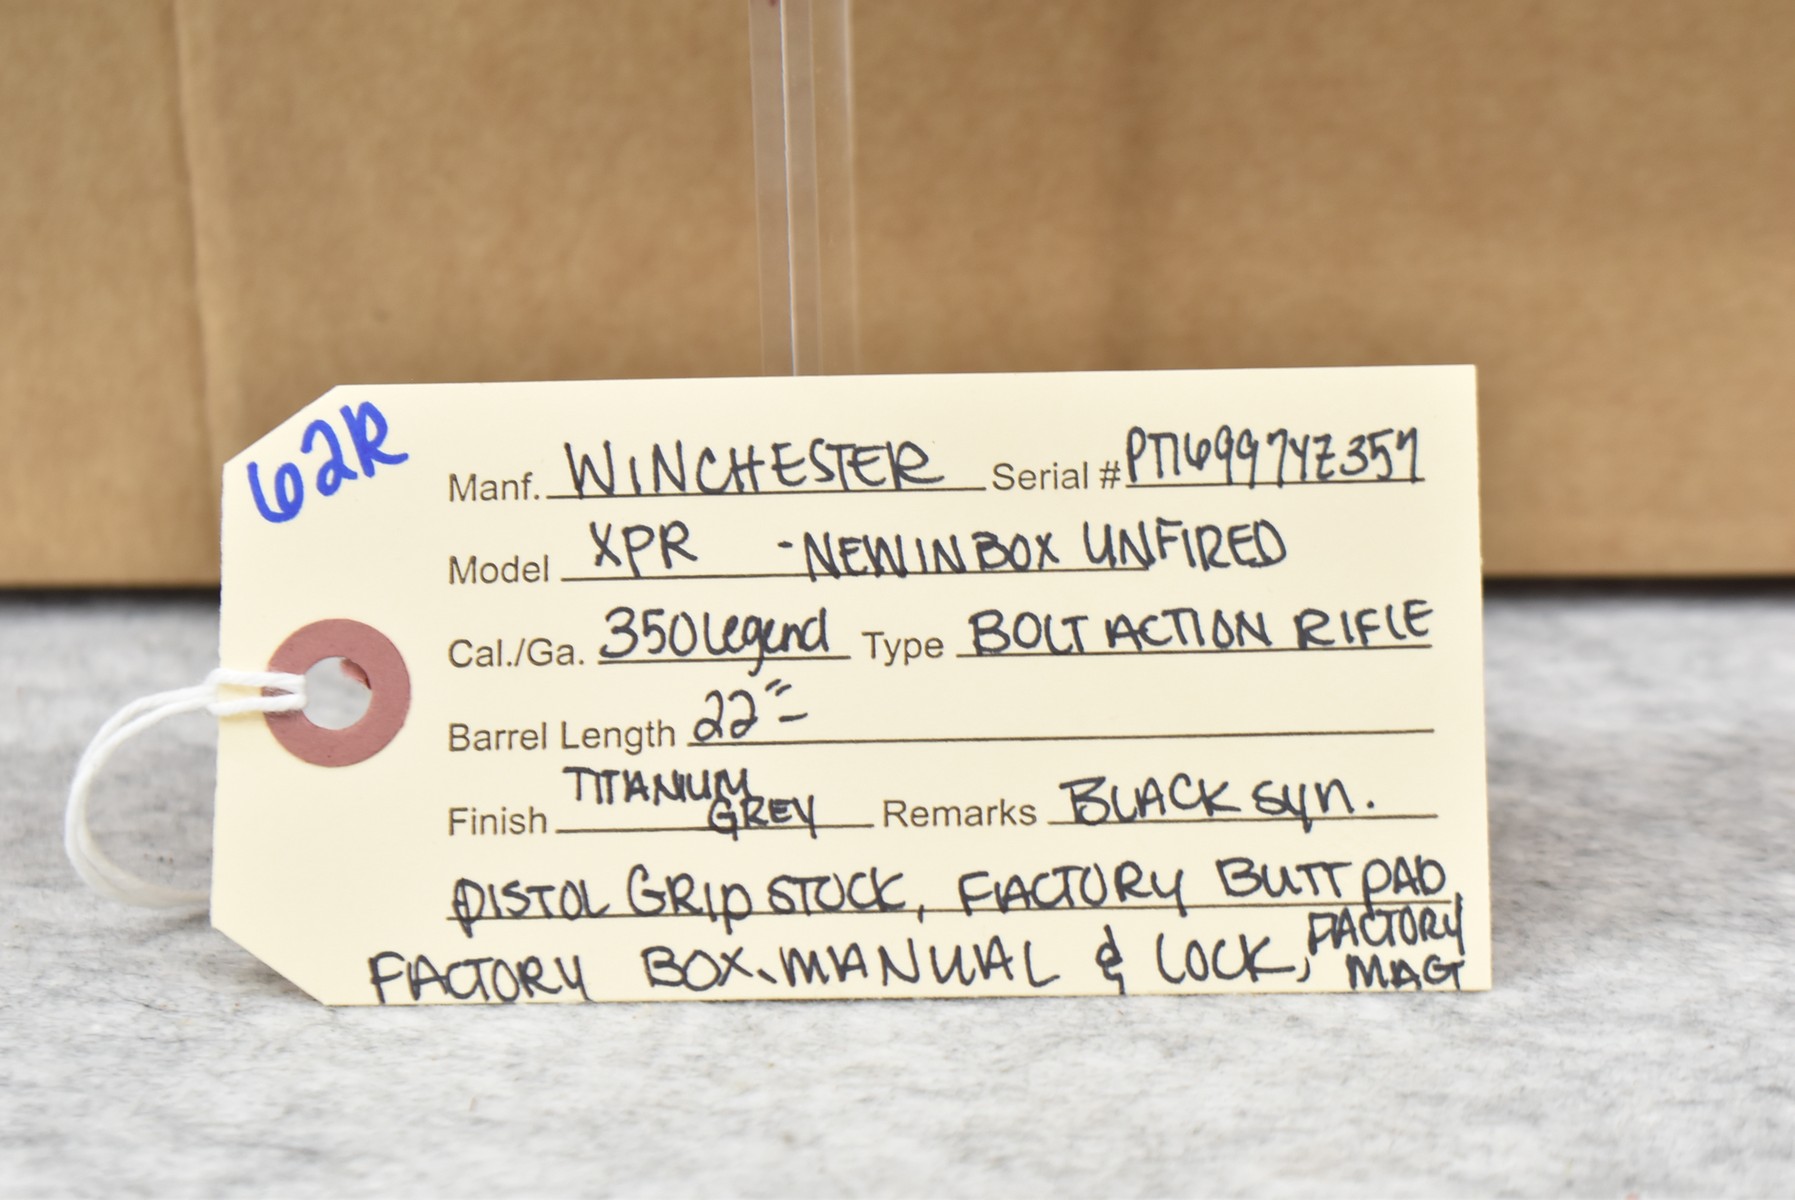 62R
Manf. WINCHESTER Serial # PT16997YZ357
Model XPR - NEW IN BOX UNFIRED
Cal./Ga. 350 Legend Type BOLT ACTION RIFLE
Barrel Length 22"
Finish TITANIUM GREY Remarks BLACK Syn.
PISTOL GRIP STOCK, FACTORY BUTT PAD,
FACTORY BOX, MANUAL & LOCK, FACTORY MAG